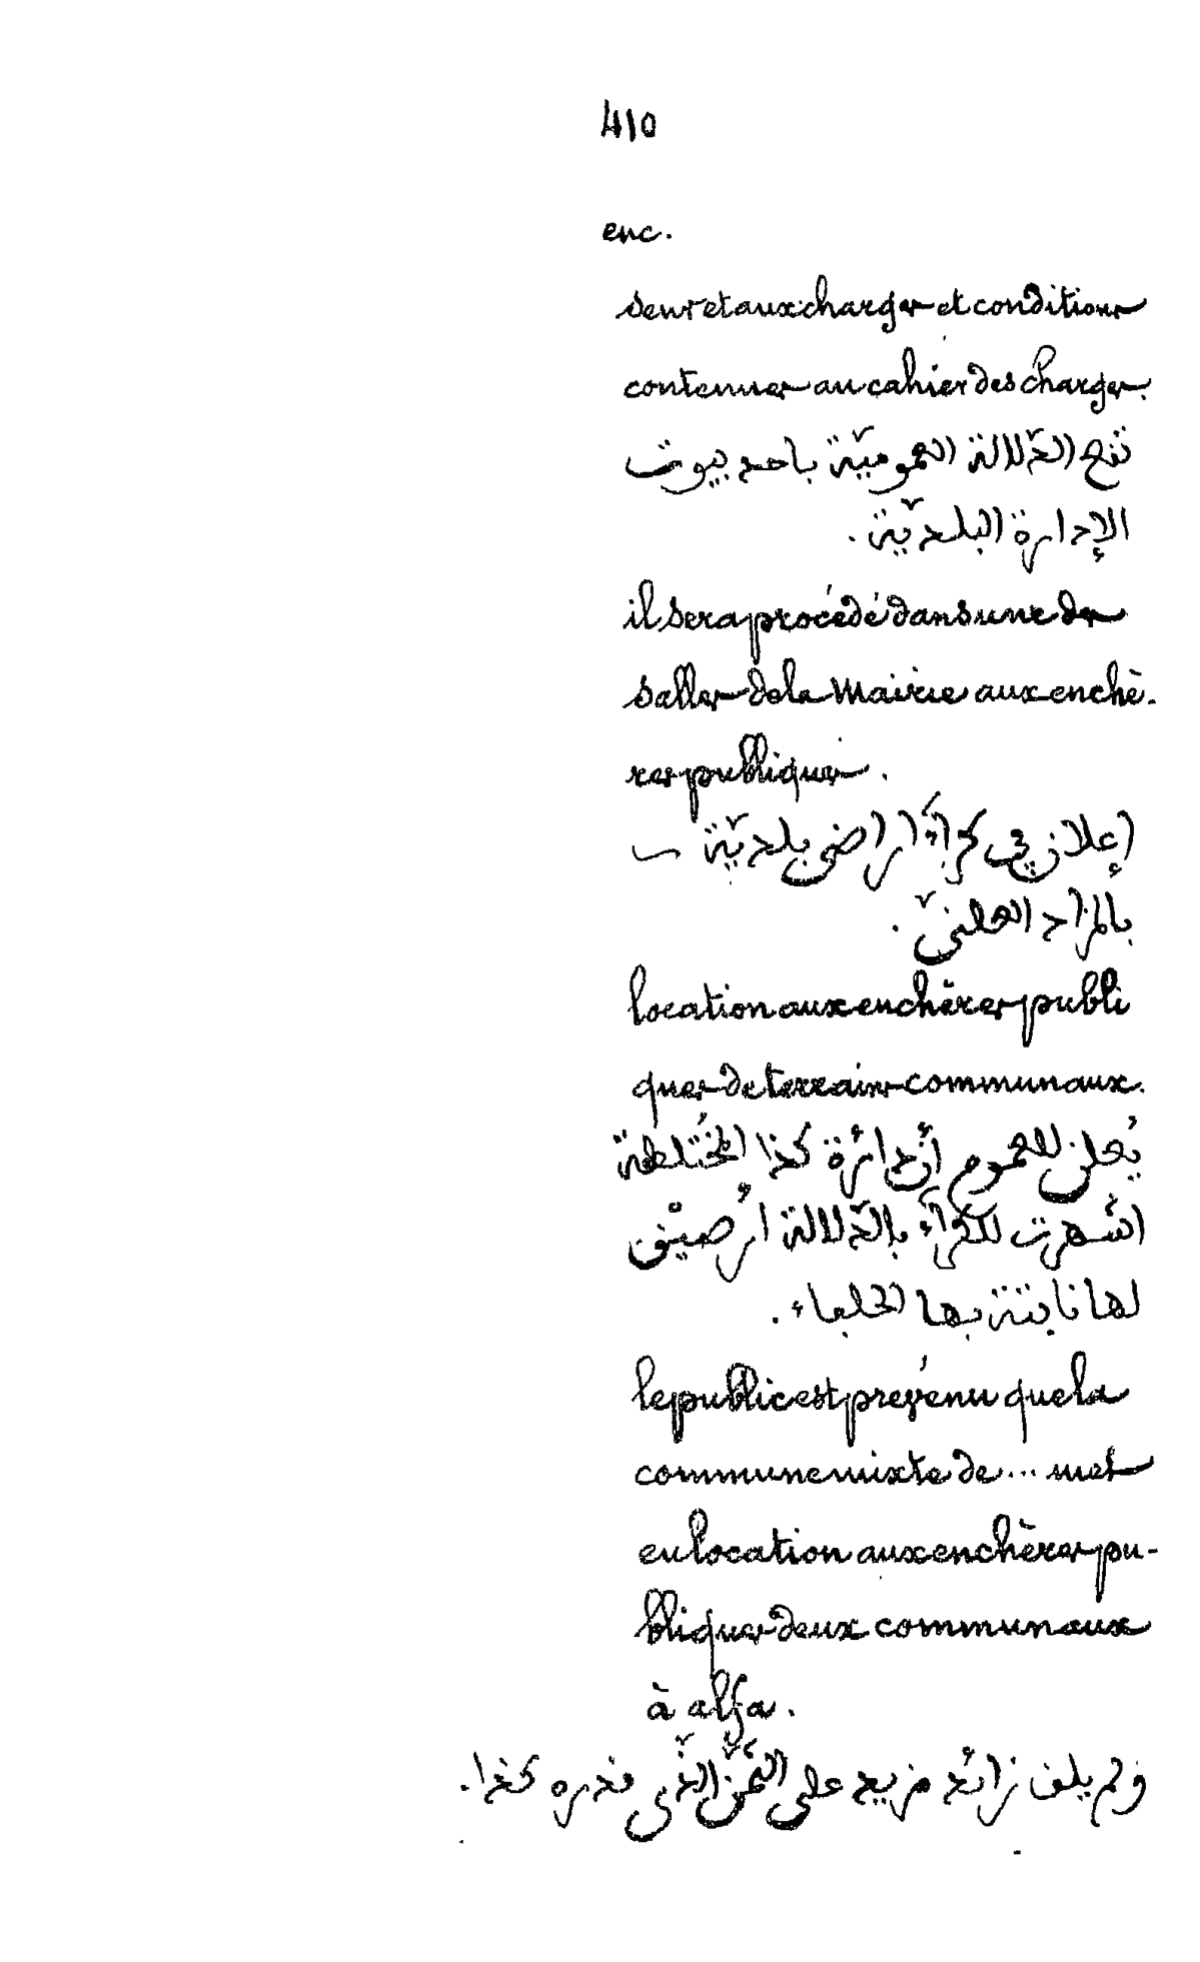 410
enc.
seur et aux charges et conditions
contenues au cahier des charges.
تفع الدّلالة العموميّة باحد بيوت
الإدارة البلديّة .
il sera procédé dans une des
salles de la Mairie aux enchè-
res publiques.
إعلان في كرآء اراضي بلديّة
بالمزاد العلنيّ .
location aux enchères publi
ques de terrains communaux.
يُعلن للعموم أنّ دائرة كذا المُختلطة
اشهرت للكرآء بالدّلالة ارضيْن
لها نابتة بها الحلفاء .
le public est prévenu que la
commune mixte de ... met
en location aux enchères pu-
bliques deux communaux
à alfa.
ولم يلف زائد مزيد على الثّمن الّذي فدره كذا .